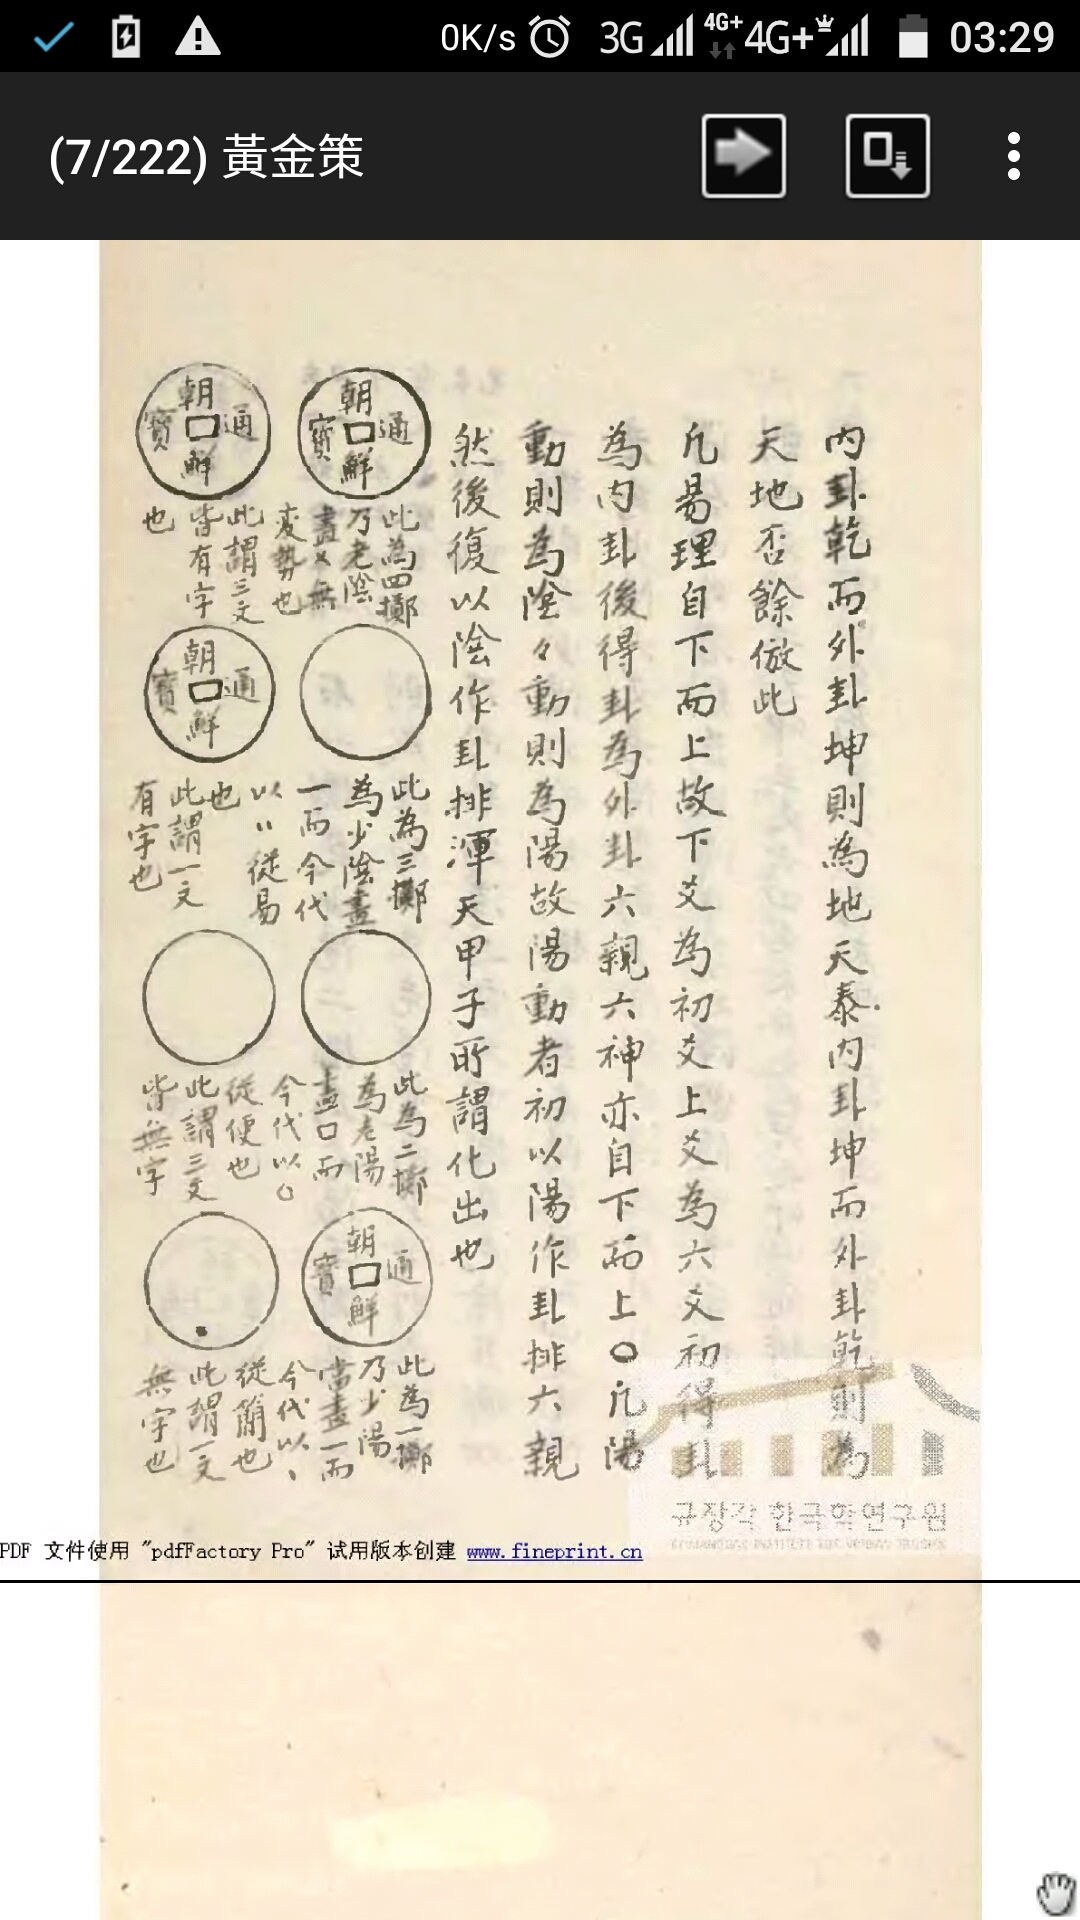 0K/s 3G 4G+ 4G+ 03:29
(7/222) 黃金策
内卦乾而外卦坤則為地天泰内卦坤而外卦乾則為
天地否餘倣此
凡易理自下而上故下爻為初爻上爻為六爻初得卦
為内卦後得卦為外卦六親六神亦自下而上〇凡陽
動則為陰々動則為陽故陽動者初以陽作卦排六親
然後復以陰作卦排渾天甲子所謂化出也
朝鮮通寶
此為四擲
乃老陰
畫×無
変勢也
朝鮮通寶
此謂三文
皆有字
也
此為三擲
為少陰畫
一而今代
以〃從易
也
朝鮮通寶
此謂一文
有字也
此為二擲
為老陽
畫口而
今代以〇
從便也
此謂三文
皆無字
朝鮮通寶
此為一擲
乃少陽
當畫一而
今代以、
從簡也
此謂一文
無字也
규장각 한국학연구원
PDF 文件使用 "pdfFactory Pro" 试用版本创建 www.fineprint.cn